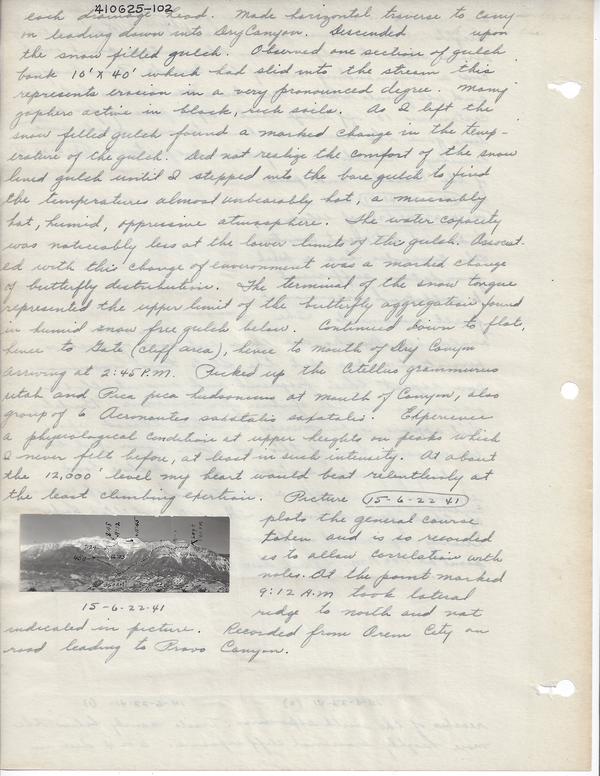 410625-102
each drainage head. Made horizontal traverse to cany-
on leading down into Dry Canyon. Descended upon
the snow filled gulch. Observed one section of gulch
bank 10' X 40' which had slid into the stream this
represents erosion in a very pronounced degree. Many
gophers active in black, rich soils. As I left the
snow filled gulch found a marked change in the temp-
erature of the gulch. Did not realize the comfort of the snow
lined gulch until I stepped into the bare gulch to find
the temperatures almost unbearably hot, a miserably
hot, humid, oppressive atmosphere. The water capacity
was noticeably less at the lower limits of the gulch. Associat-
ed with this change of environment was a marked change
of butterfly distribution. The terminal of the snow tongue
represented the upper limit of the butterfly aggregation found
in humid snow free gulch below. Continued down to flat,
hence to Gate (cliff area), hence to mouth of Dry Canyon
arriving at 2:45 P.M. Picked up the Citellus grammurus
utah and Pica pica hudsonius at mouth of Canyon, also
group of 6 Aeronautes saxatalis saxatalis. Experience
a physiological condition at upper heights on peaks which
I never felt before, at least in such intensity. At about
the 12,000' level my heart would beat relentlessly at
the least climbing exertion. Picture 15-6-22-41
plots the general course
taken and is so recorded
as to allow correlation with
notes. At the point marked
9:12 A.M took lateral
ridge to north and not
15-6-22-41
indicated in picture. Recorded from Orem City on
road leading to Provo Canyon.